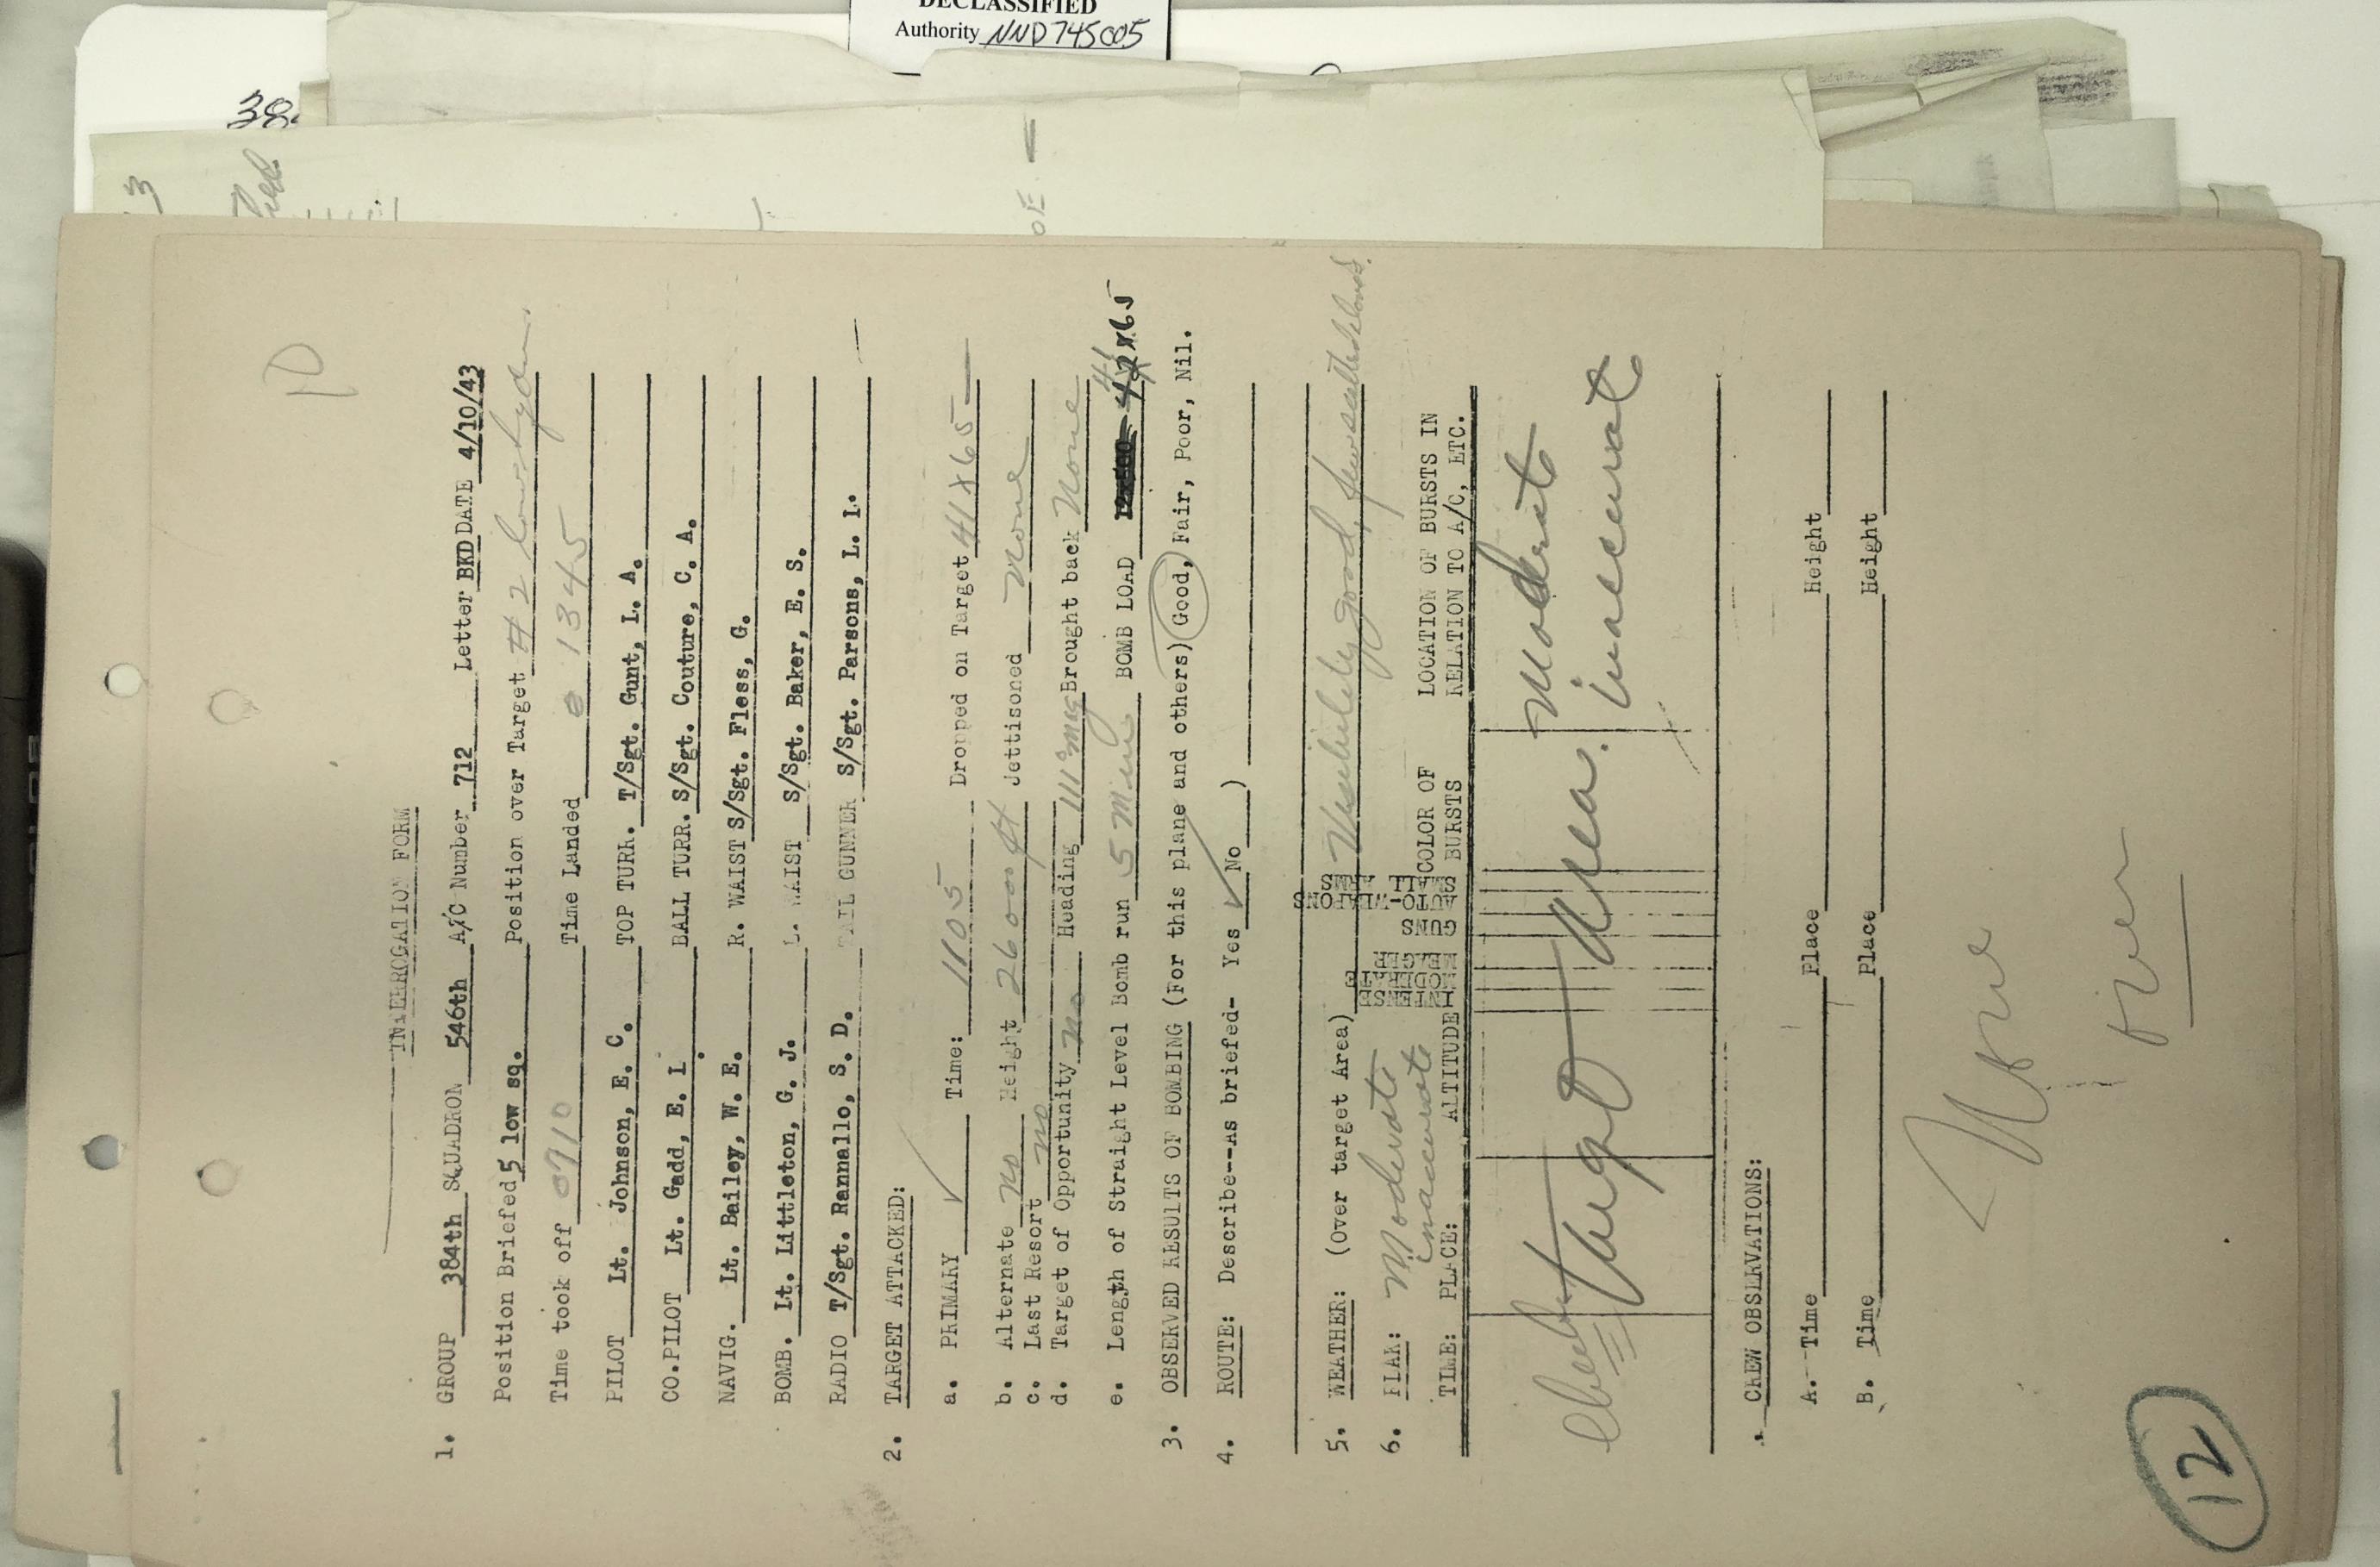 DECLASSIFIED
Authority NND 745005
38
3
OE —
10
INTERROGATION FORM
1. GROUP 384th SQUADRON 546th A/C Number 712 Letter BKD DATE 4/10/43
Position Briefed 5 low sq. Position over Target # 2 low
Time took off 0710 Time Landed 1345
PILOT Lt. Johnson, E. C. TOP TURR. T/Sgt. Gunt, L. A.
CO.PILOT Lt. Gadd, E. I. BALL TURR. S/Sgt. Couture, C. A.
NAVIG. Lt. Bailey, W. E. R. WAIST S/Sgt. Fless, G.
BOMB. Lt. Littleton, G. J. L. WAIST S/Sgt. Baker, E. S.
RADIO T/Sgt. Rannallo, S. D. TAIL GUNNER S/Sgt. Parsons, L. L.
2. TARGET ATTACKED:
a. PRIMARY ✓ Time: 1105 Dropped on Target 41 X 65
b. Alternate no Height 26000 ft Jettisoned None
c. Last Resort no
d. Target of Opportunity no Heading 111° mag Brought back None
e. Length of Straight Level Bomb run 5 Min BOMB LOAD 41 X 65
3. OBSERVED RESULTS OF BOMBING (For this plane and others) Good, Fair, Poor, Nil.
4. ROUTE: Describe--As briefed- Yes ✓ No )
5. WEATHER: (Over target Area) Visibility good, few scattered clouds.
6. FLAK: Moderate inaccurate
TIME: PLACE: ALTITUDE INTENSE MODERATE MEAGER GUNS AUTO-WEAPONS SMALL ARMS COLOR OF BURSTS LOCATION OF BURSTS IN RELATION TO A/C, ETC.
Target Area. Moderate inaccurate
CREW OBSERVATIONS:
A. Time Place Height
B. Time Place Height
over
12